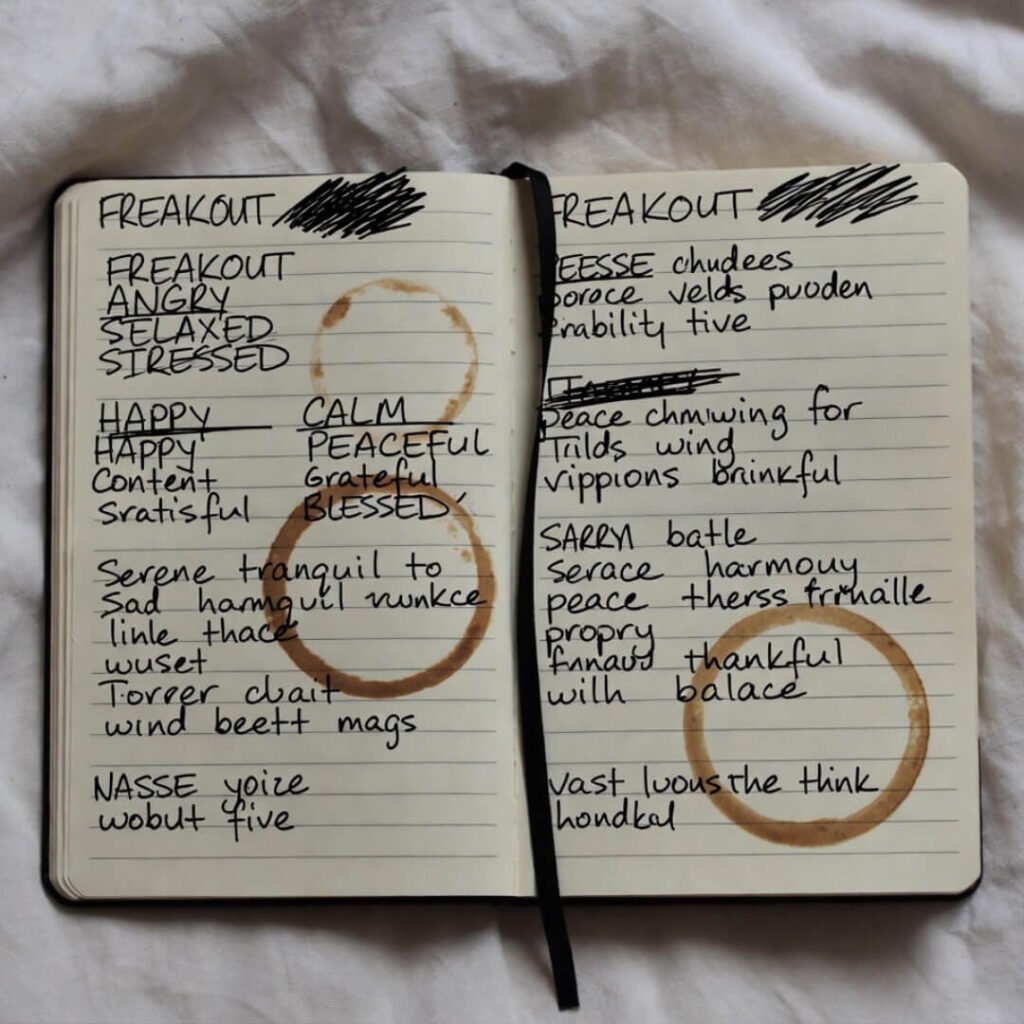 FREAKOUT
FREAKOUT
ANGRY
SELAXED
STRESSED
HAPPY
HAPPY
Content
Sratisful
CALM
PEACEFUL
Grateful
BLESSED
Serene tranquil to
Sad harmquil
linle thace
wuset
Torrer
wind beett mags
NASSE yoize
wobut five
FREAKOUT
EESSE chudees
porace velds puoden
erability tive
peace chmiwing for
Tilds wing
vippions brinkful
SARRYI batle
serace harmouy
peace therss
propry
thankful
wilh balace
vast luous the think
hondkal